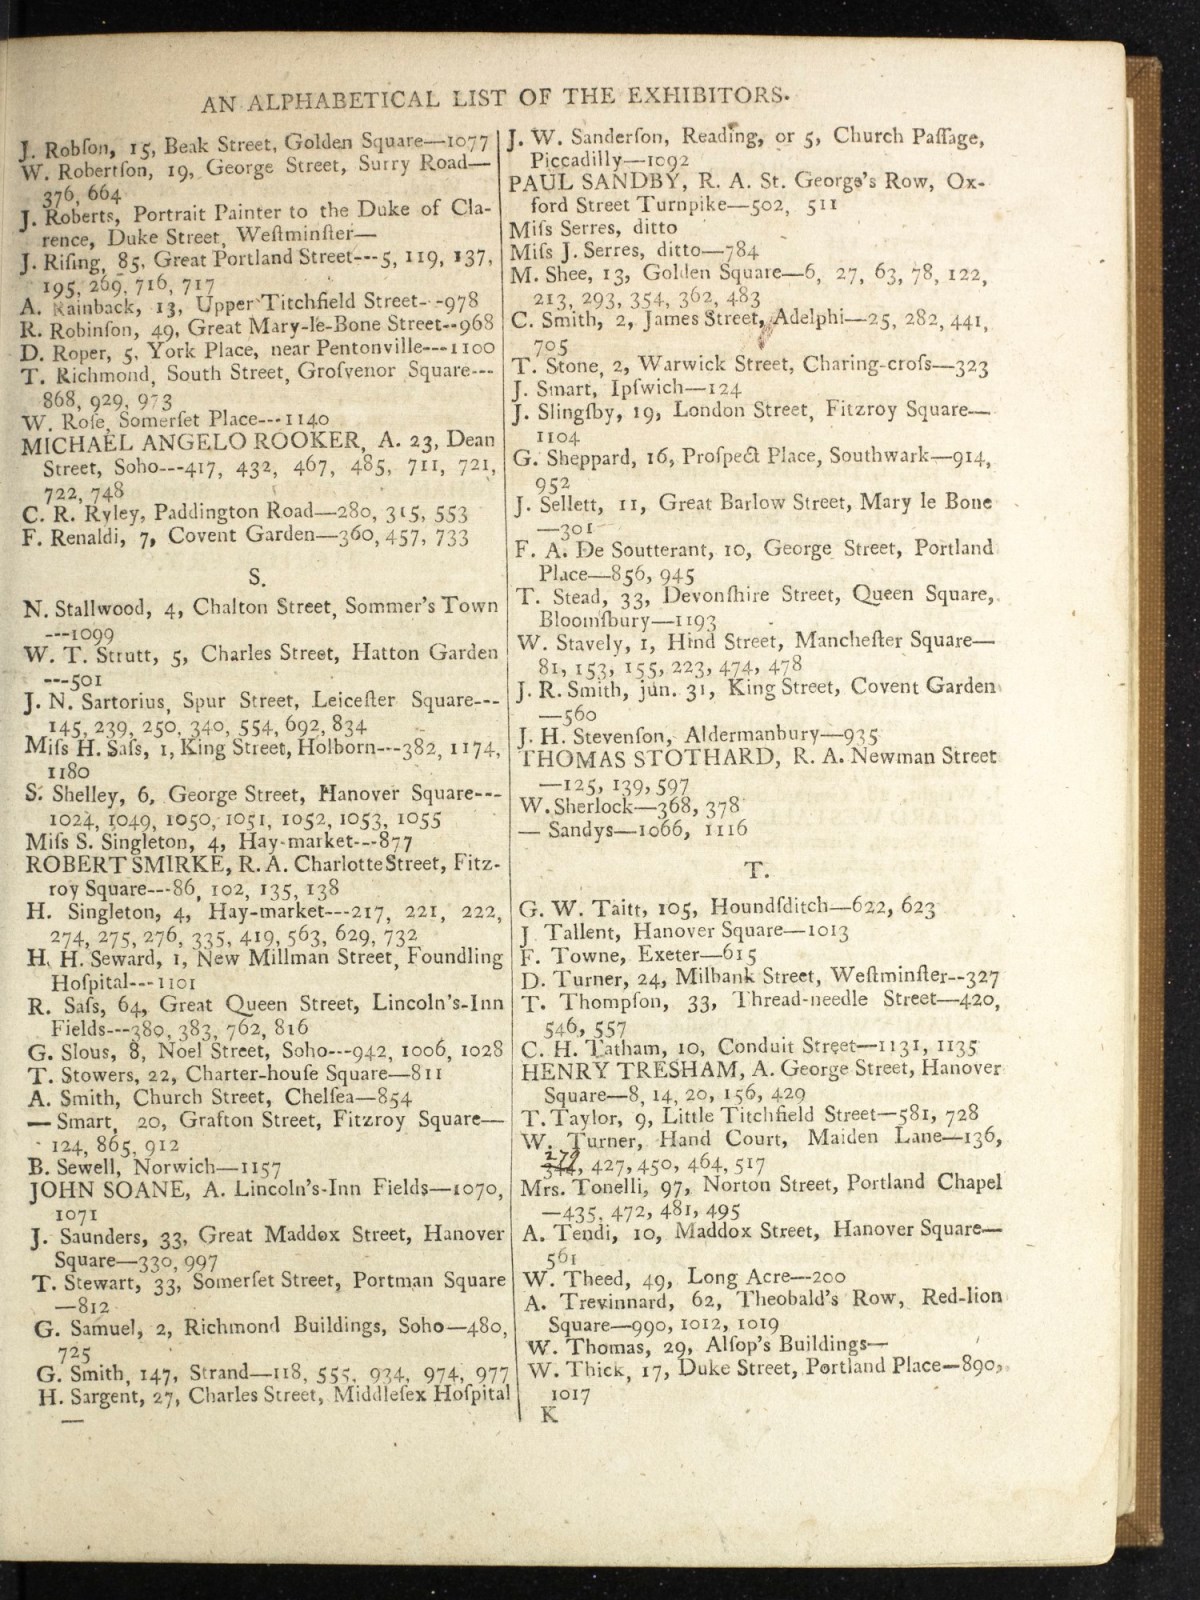 AN ALPHABETICAL LIST OF THE EXHIBITORS.
J. Robſon, 15, Beak Street, Golden Square—1077
W. Robertſon, 19, George Street, Surry Road—
376, 664
J. Roberts, Portrait Painter to the Duke of Cla-
rence, Duke Street, Weſtminſter—
J. Riſing, 85, Great Portland Street---5, 119, 137,
195, 269, 716, 717
A. Rainback, 13, Upper Titchfield Street--978
R. Robinſon, 49, Great Mary-le-Bone Street--968
D. Roper, 5, York Place, near Pentonville---1100
T. Richmond, South Street, Groſvenor Square---
868, 929, 973
W. Roſe, Somerſet Place---1140
MICHAEL ANGELO ROOKER, A. 23, Dean
Street, Soho---417, 432, 467, 485, 711, 721,
722, 748
C. R. Ryley, Paddington Road—280, 315, 553
F. Renaldi, 7, Covent Garden—360, 457, 733
S.
N. Stallwood, 4, Chalton Street, Sommer's Town
---1099
W. T. Strutt, 5, Charles Street, Hatton Garden
---501
J. N. Sartorius, Spur Street, Leiceſter Square---
145, 239, 250, 340, 554, 692, 834
Miſs H. Saſs, 1, King Street, Holborn---382, 1174,
1180
S. Shelley, 6, George Street, Hanover Square---
1024, 1049, 1050, 1051, 1052, 1053, 1055
Miſs S. Singleton, 4, Hay-market---877
ROBERT SMIRKE, R. A. Charlotte Street, Fitz-
roy Square---86, 102, 135, 138
H. Singleton, 4, Hay-market---217, 221, 222,
274, 275, 276, 335, 419, 563, 629, 732
H. H. Seward, 1, New Millman Street, Foundling
Hoſpital---1101
R. Saſs, 64, Great Queen Street, Lincoln's-Inn
Fields---380, 383, 762, 816
G. Slous, 8, Noel Street, Soho---942, 1006, 1028
T. Stowers, 22, Charter-houſe Square—811
A. Smith, Church Street, Chelſea—854
— Smart, 20, Grafton Street, Fitzroy Square—
124, 865, 912
B. Sewell, Norwich—1157
JOHN SOANE, A. Lincoln's-Inn Fields—1070,
1071
J. Saunders, 33, Great Maddox Street, Hanover
Square—330, 997
T. Stewart, 33, Somerſet Street, Portman Square
—812
G. Samuel, 2, Richmond Buildings, Soho—480,
725
G. Smith, 147, Strand—118, 555, 934, 974, 977
H. Sargent, 27, Charles Street, Middleſex Hoſpital
—
J. W. Sanderſon, Reading, or 5, Church Paſſage,
Piccadilly—1092
PAUL SANDBY, R. A. St. George's Row, Ox-
ford Street Turnpike—502, 511
Miſs Serres, ditto
Miſs J. Serres, ditto—784
M. Shee, 13, Golden Square—6, 27, 63, 78, 122,
213, 293, 354, 362, 483
C. Smith, 2, James Street, Adelphi—25, 282, 441,
705
T. Stone, 2, Warwick Street, Charing-croſs—323
J. Smart, Ipſwich—124
J. Slingſby, 19, London Street, Fitzroy Square—
1104
G. Sheppard, 16, Proſpect Place, Southwark—914,
952
J. Sellett, 11, Great Barlow Street, Mary le Bone
—301
F. A. De Soutterant, 10, George Street, Portland
Place—856, 945
T. Stead, 33, Devonſhire Street, Queen Square,
Bloomſbury—1193
W. Stavely, 1, Hind Street, Mancheſter Square—
81, 153, 155, 223, 474, 478
J. R. Smith, jun. 31, King Street, Covent Garden
—560
J. H. Stevenſon, Aldermanbury—935
THOMAS STOTHARD, R. A. Newman Street
—125, 139, 597
W. Sherlock—368, 378
— Sandys—1066, 1116
T.
G. W. Taitt, 105, Houndſditch—622, 623
J Tallent, Hanover Square—1013
F. Towne, Exeter—615
D. Turner, 24, Milbank Street, Weſtminſter--327
T. Thompſon, 33, Thread-needle Street—420,
546, 557
C. H. Tatham, 10, Conduit Street—1131, 1135
HENRY TRESHAM, A. George Street, Hanover
Square—8, 14, 20, 156, 429
T. Taylor, 9, Little Titchfield Street—581, 728
W. Turner, Hand Court, Maiden Lane—136,
279
344, 427, 450, 464, 517
Mrs. Tonelli, 97, Norton Street, Portland Chapel
—435, 472, 481, 495
A. Tendi, 10, Maddox Street, Hanover Square—
561
W. Theed, 49, Long Acre—200
A. Trevinnard, 62, Theobald's Row, Red-lion
Square—990, 1012, 1019
W. Thomas, 29, Alſop's Buildings—
W. Thick, 17, Duke Street, Portland Place—890,
1017
K